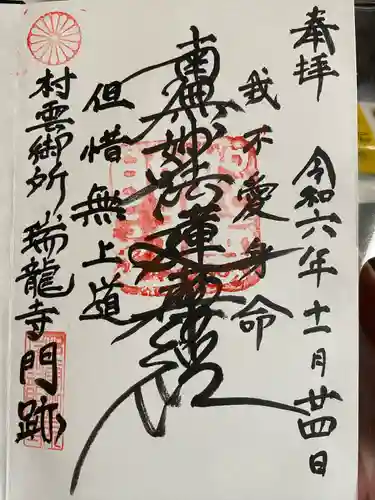 奉拝
令和六年十一月廿四日
我不愛身命
南無妙法蓮華経
但惜無上道
村雲御所 瑞龍寺門跡